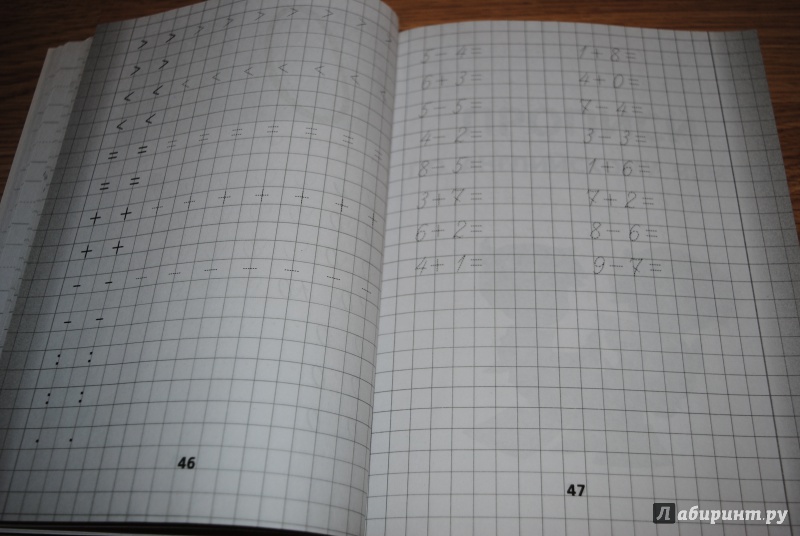 > > > > > > > > > >
> >
< < < < < < < < < <
< <
= = = = = = = = =
= =
+ + + + + + + + +
+ +
- - - - - - - - -
- -
: :
: :
. .
46
5-4= 1+8=
6+3= 4+0=
5-5= 7-4=
4-2= 3-3=
8-5= 1+6=
3+7= 7+2=
6+2= 8-6=
4+1= 9-7=
47
Лабиринт.ру